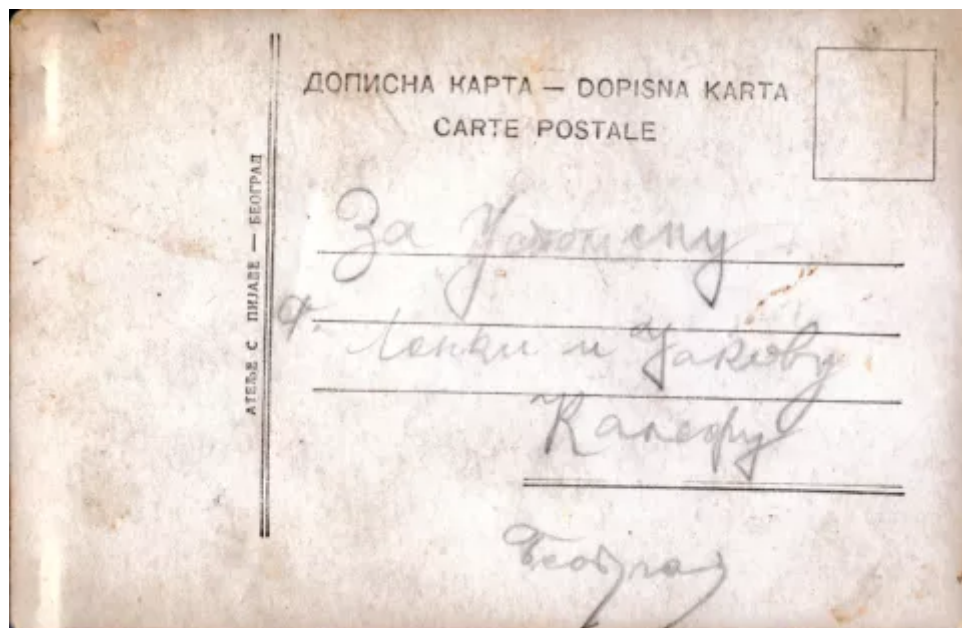 ДОПИСНА КАРТА — DOPISNA KARTA
CARTE POSTALE
АТЕЉЕ С. ПИЈАДЕ — БЕОГРАД
За Успомену
Ленки и Јакову
Београд